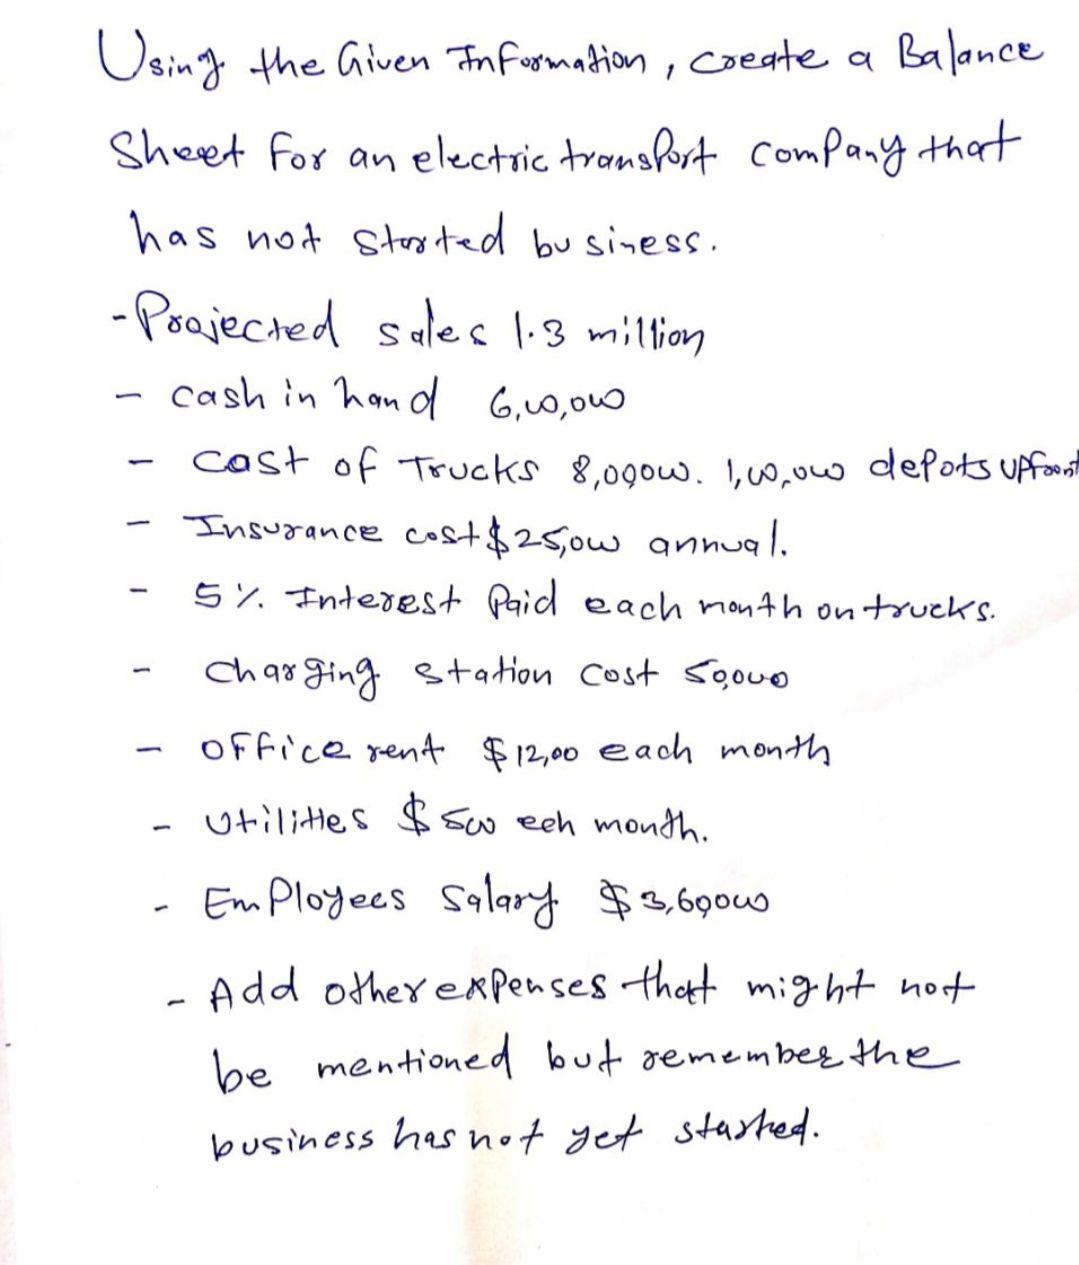 Using the Given Information, create a Balance
Sheet For an electric transport company that
has not started business.
- Projected sales 1.3 million
- cash in hand 6,00,000
- Cost of Trucks 8,00000. 1,00,000 depots upfront
- Insurance cost $25,000 annual.
- 5% Interest Paid each month on trucks.
- Charging station cost 50,000
- OFFice rent $12,00 each month
- Utilities $500 eeh month.
- Employees Salary $3,60000
- Add other expenses that might not
be mentioned but remember the
business has not yet started.